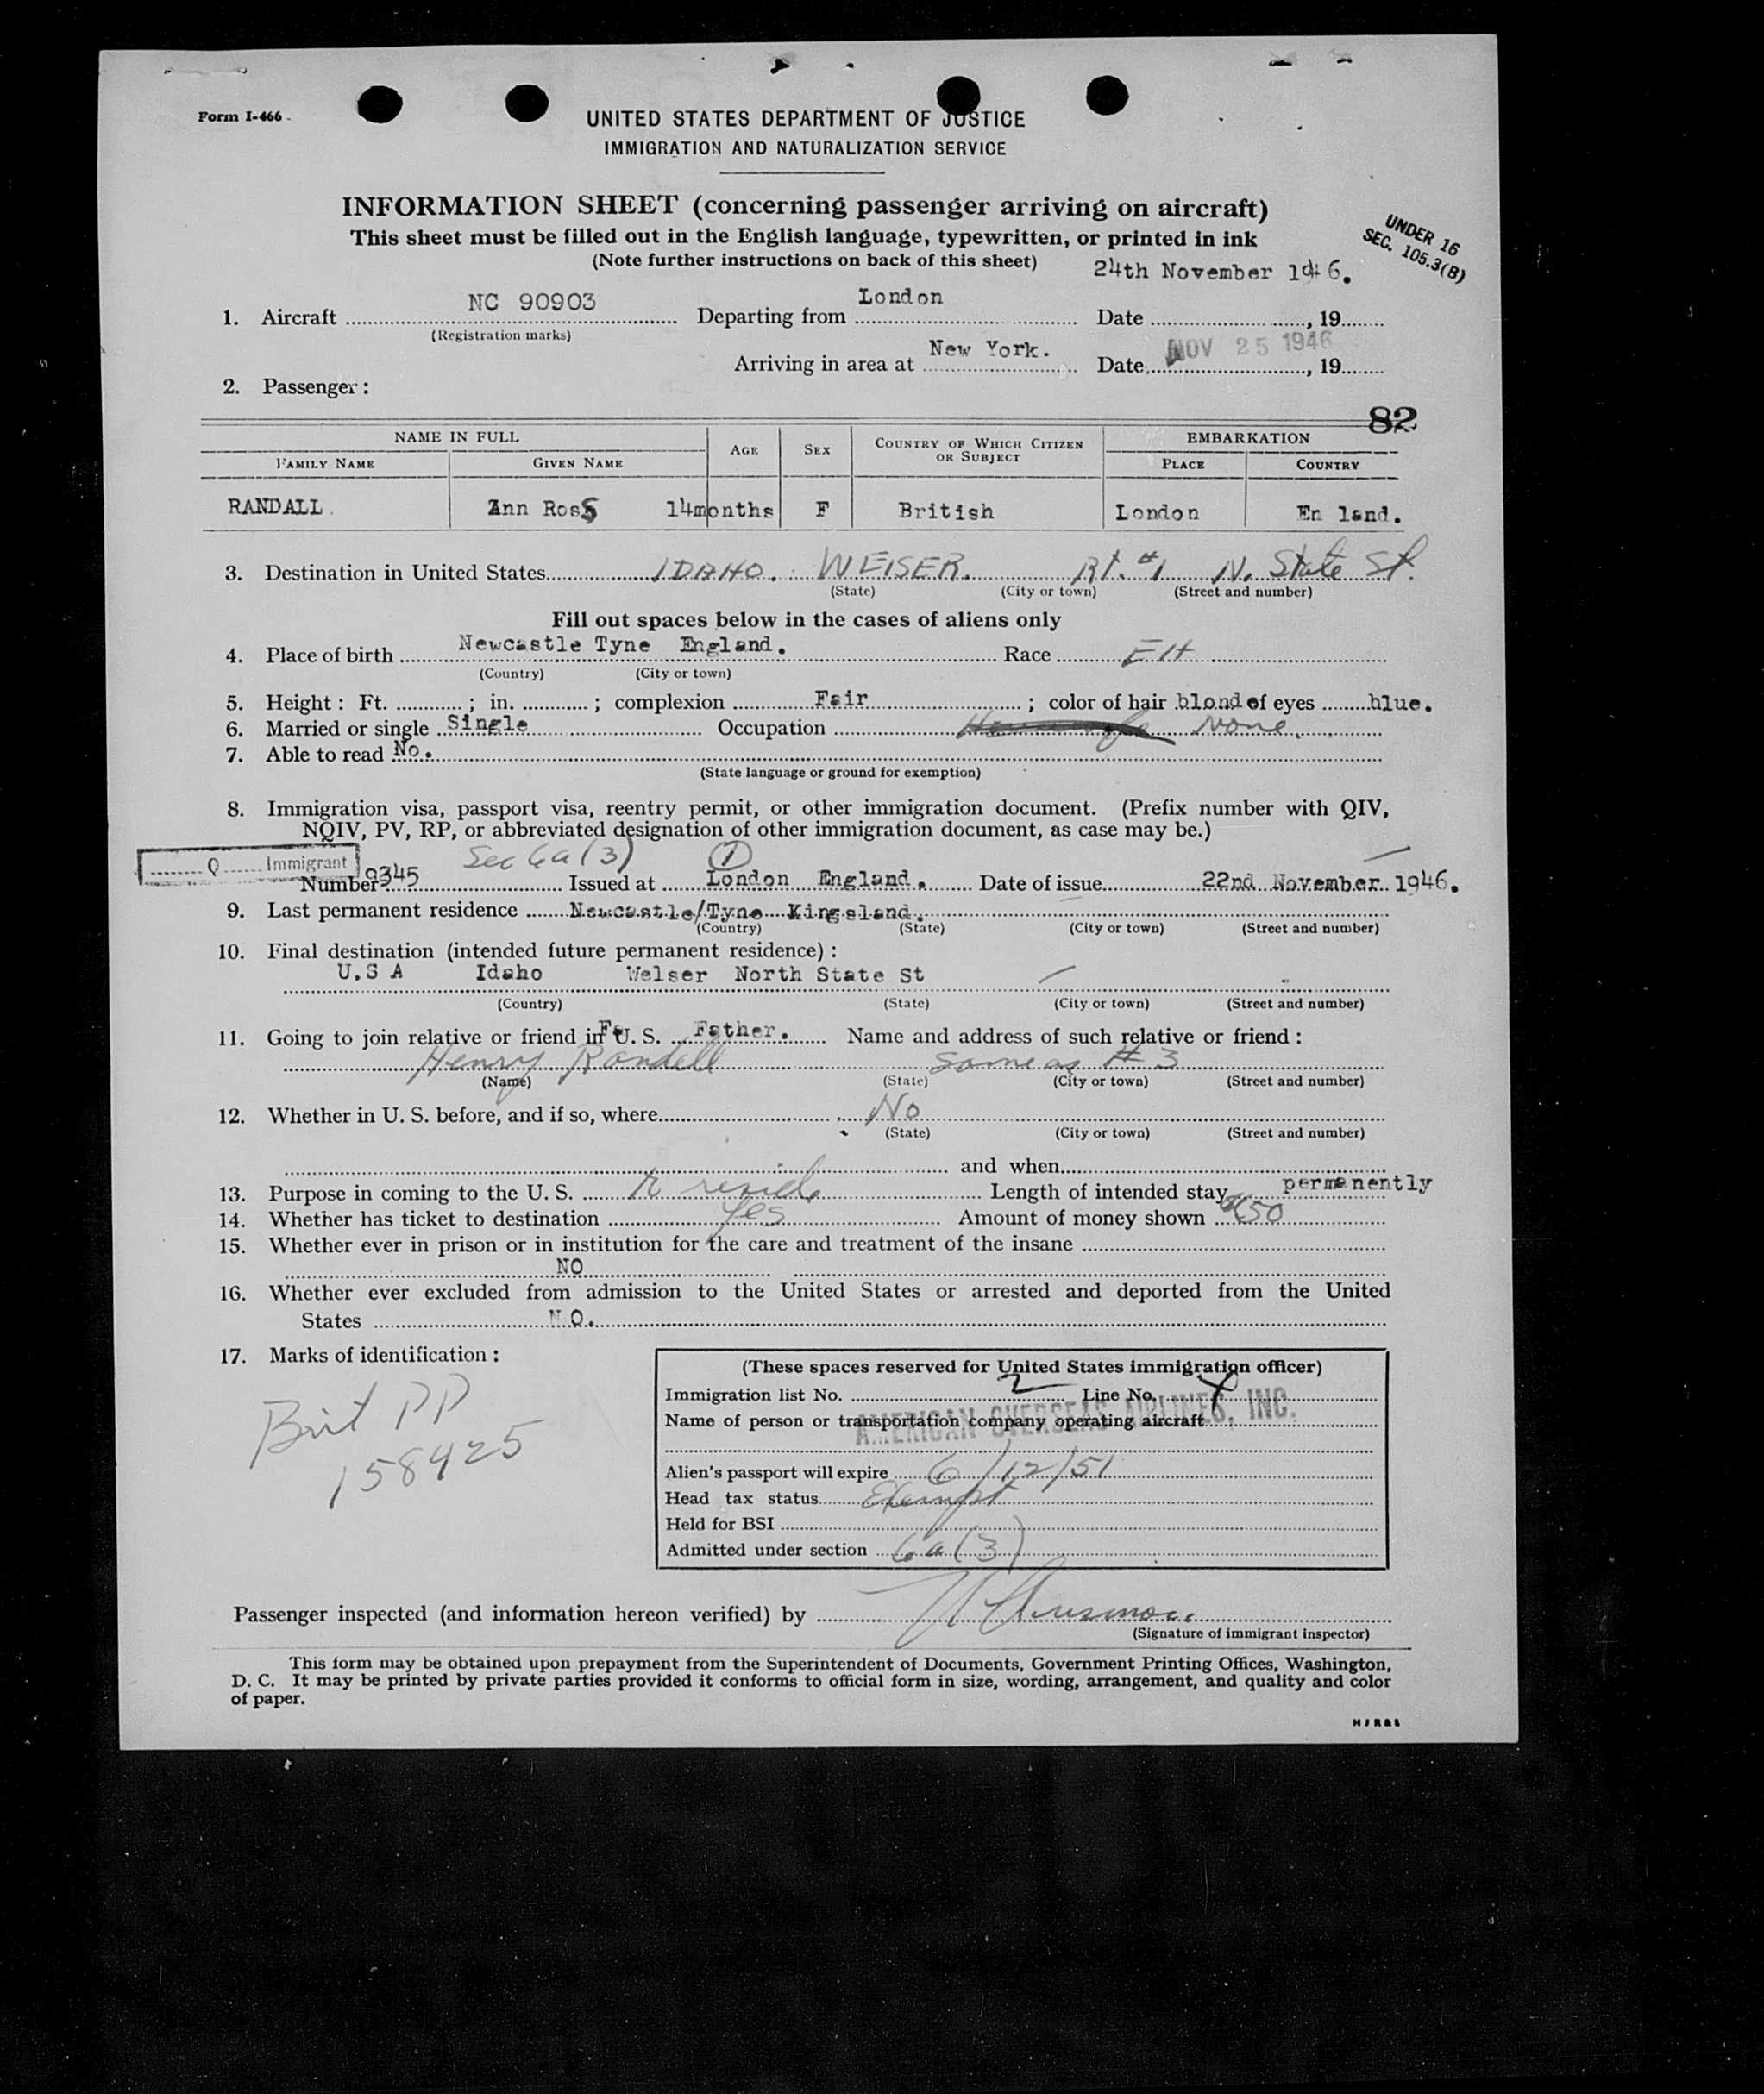 Form I-466
UNITED STATES DEPARTMENT OF JUSTICE
IMMIGRATION AND NATURALIZATION SERVICE
INFORMATION SHEET (concerning passenger arriving on aircraft)
This sheet must be filled out in the English language, typewritten, or printed in ink
(Note further instructions on back of this sheet)
UNDER 16
SEC. 105.3(B)
24th November 1946.
1. Aircraft NC 90903 Departing from London Date , 19
(Registration marks)
Arriving in area at New York. Date NOV 25 1946 , 19
2. Passenger:
82
NAME IN FULL AGE SEX COUNTRY OF WHICH CITIZEN OR SUBJECT EMBARKATION
FAMILY NAME GIVEN NAME PLACE COUNTRY
RANDALL. Ann Ross 14months F British London En land.
3. Destination in United States IDAHO. WEISER. Rt. #1 N. State St.
(State) (City or town) (Street and number)
Fill out spaces below in the cases of aliens only
4. Place of birth Newcastle Tyne England. Race
(Country) (City or town)
5. Height: Ft. ; in. ; complexion Fair ; color of hair blond of eyes blue.
6. Married or single Single Occupation None
7. Able to read No.
(State language or ground for exemption)
8. Immigration visa, passport visa, reentry permit, or other immigration document. (Prefix number with QIV,
NQIV, PV, RP, or abbreviated designation of other immigration document, as case may be.)
Sec 6a(3) 1
Q Immigrant
Number 9345 Issued at London England. Date of issue 22nd November 1946.
9. Last permanent residence Newcastle/Tyne Kingsland.
(Country) (State) (City or town) (Street and number)
10. Final destination (intended future permanent residence):
U.S A Idaho Welser North State St
(Country) (State) (City or town) (Street and number)
11. Going to join relative or friend in U. S. Father. Name and address of such relative or friend:
Henry Randell same as #3
(Name) (State) (City or town) (Street and number)
12. Whether in U. S. before, and if so, where No
(State) (City or town) (Street and number)
and when
13. Purpose in coming to the U. S. to reside Length of intended stay permanently
14. Whether has ticket to destination Yes Amount of money shown
15. Whether ever in prison or in institution for the care and treatment of the insane
NO
16. Whether ever excluded from admission to the United States or arrested and deported from the United
States N O.
17. Marks of identification:
Brit PP
158425
(These spaces reserved for United States immigration officer)
Immigration list No. 2 Line No. 4
Name of person or transportation company operating aircraft
AMERICAN OVERSEAS AIRLINES, INC.
Alien's passport will expire 6/12/51
Head tax status Exempt
Held for BSI
Admitted under section 6a(3)
Passenger inspected (and information hereon verified) by
(Signature of immigrant inspector)
This form may be obtained upon prepayment from the Superintendent of Documents, Government Printing Offices, Washington,
D. C. It may be printed by private parties provided it conforms to official form in size, wording, arrangement, and quality and color
of paper.